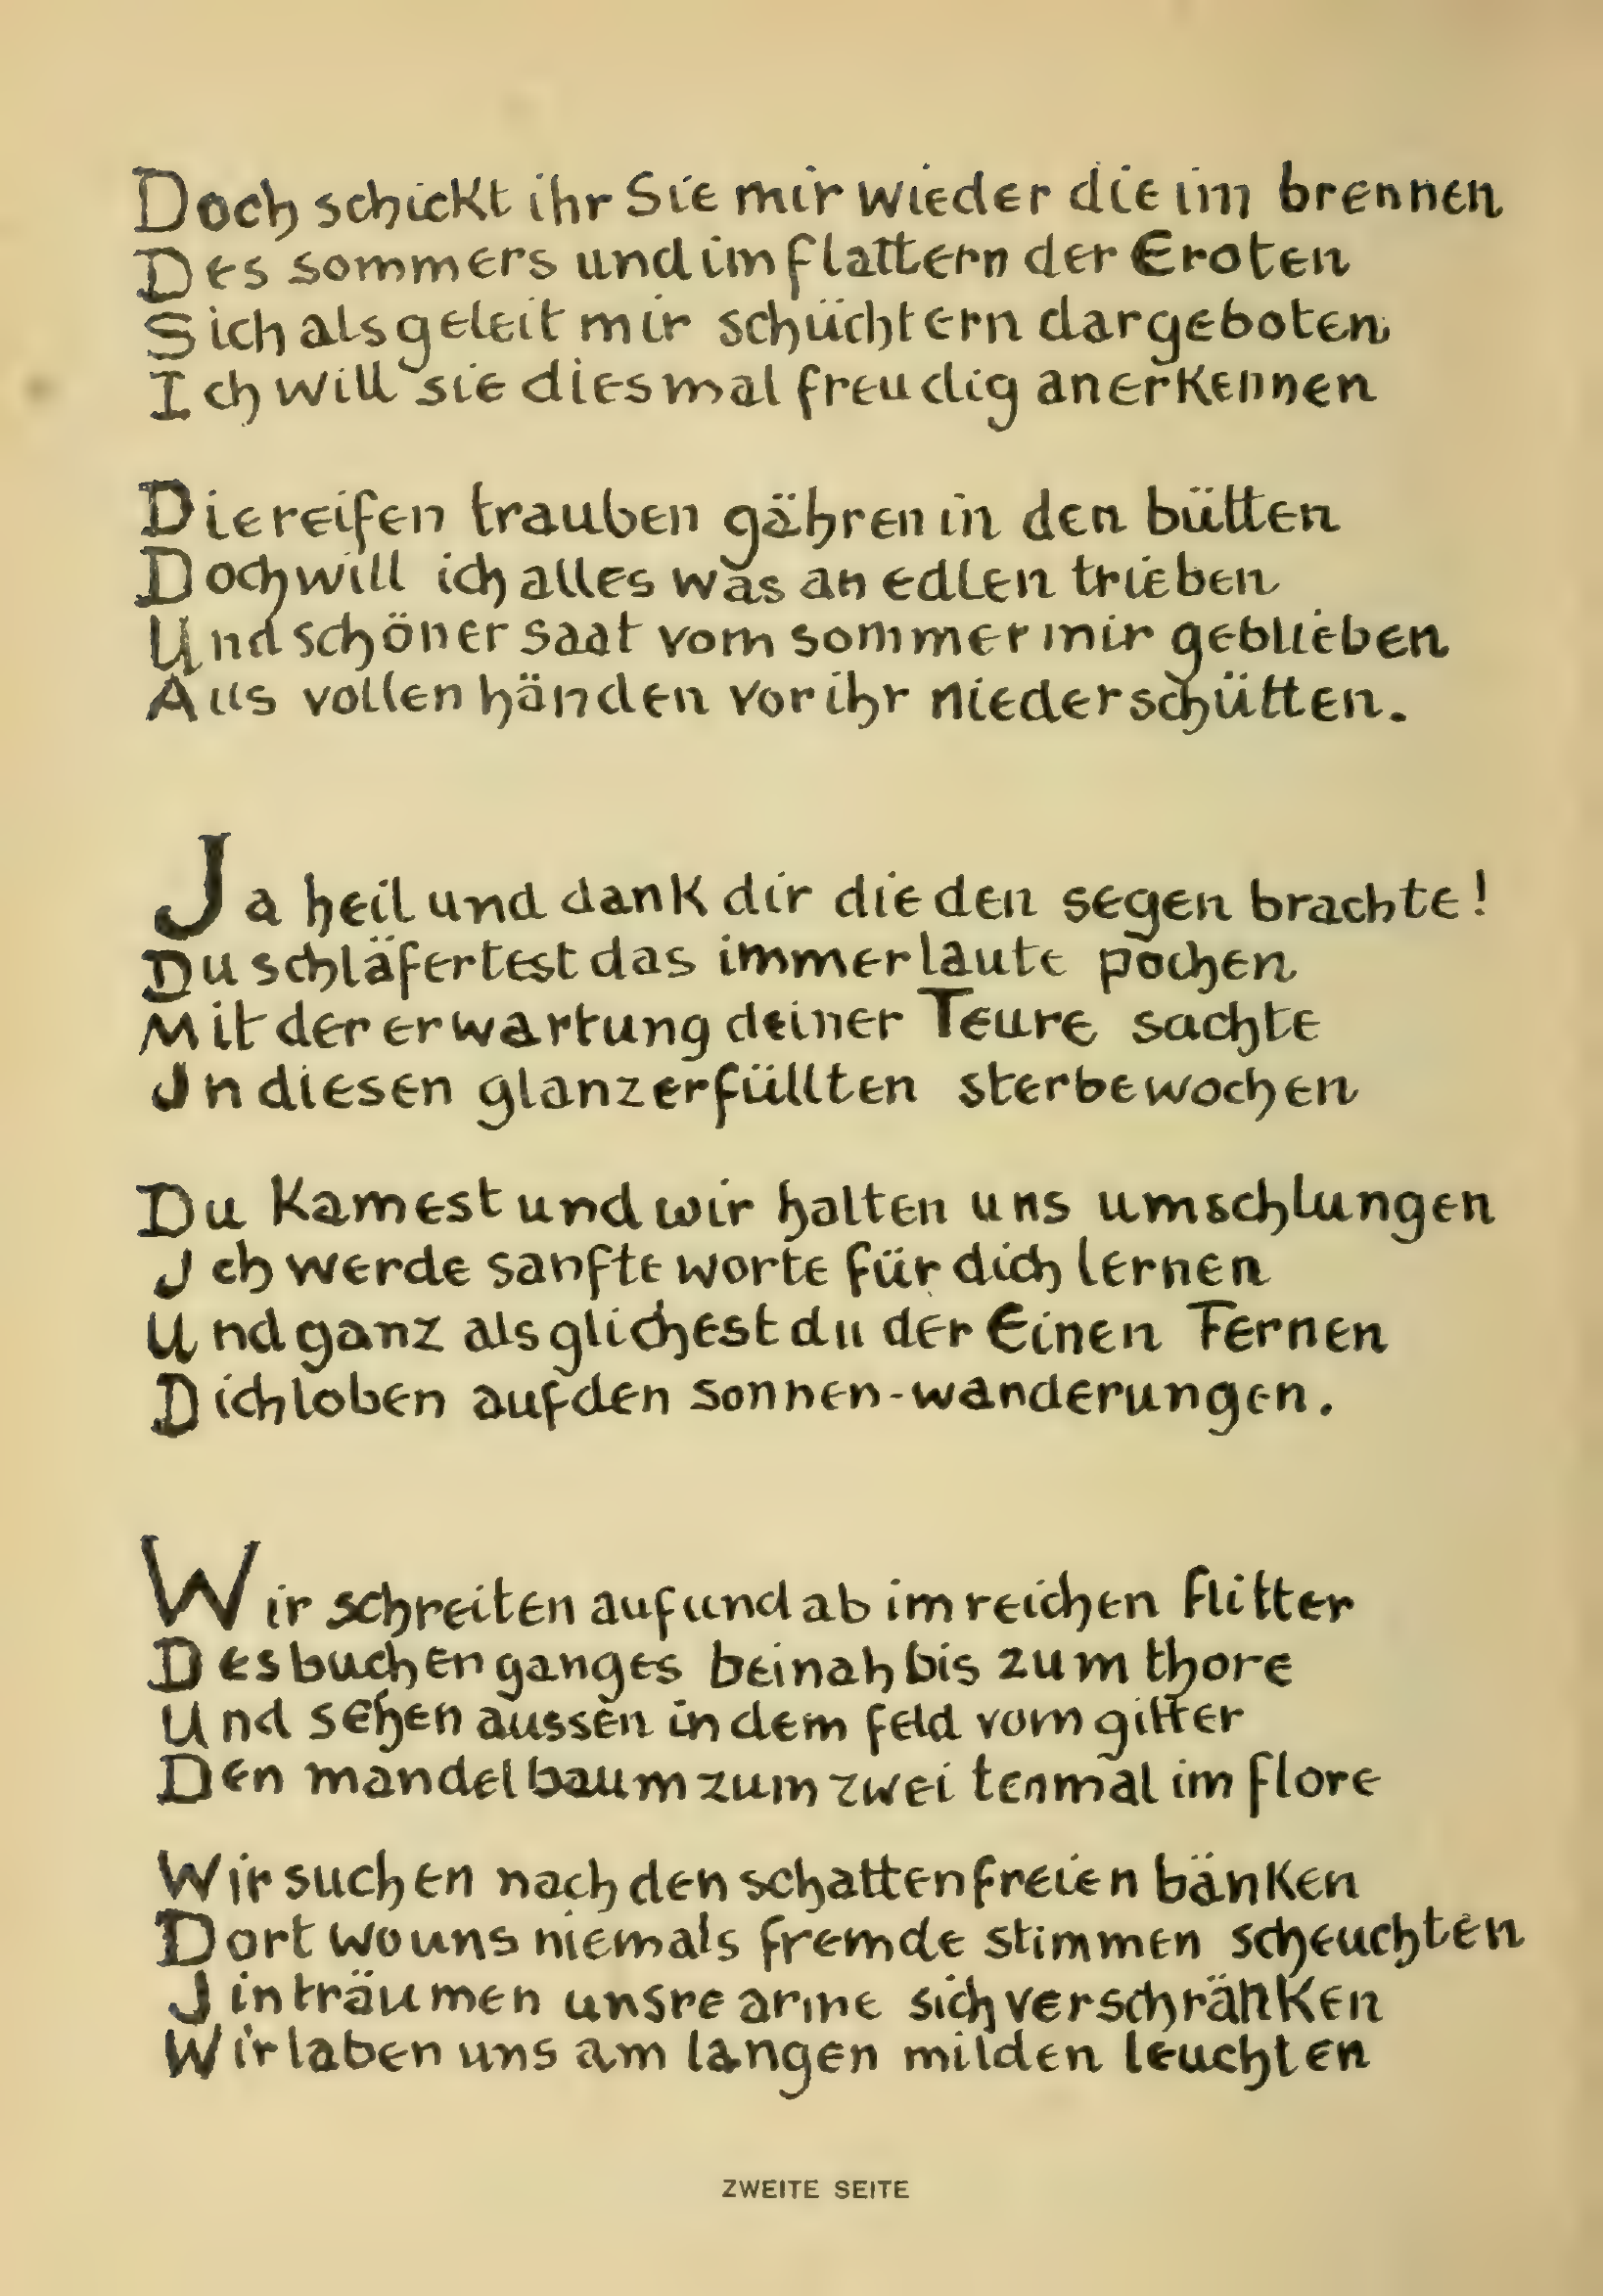 Doch schickt ihr Sie mir wieder die im brennen
Des sommers und im flattern der Eroten
Sich als geleit mir schüchtern dargeboten
Ich will sie diesmal freudig anerkennen
Die reifen trauben gähren in den bütten
Doch will ich alles was an edlen trieben
Und schöner saat vom sommer mir geblieben
Aus vollen händen vor ihr niederschütten.
Ja heil und dank dir die den segen brachte!
Du schläfertest das immer laute pochen
Mit der erwartung deiner Teure sachte
In diesen glanzerfüllten sterbewochen
Du kamest und wir halten uns umschlungen
Ich werde sanfte worte für dich lernen
Und ganz als glichest du der Einen Fernen
Dich loben auf den sonnen-wanderungen.
Wir schreiten auf und ab im reichen flitter
Des buchenganges beinah bis zum thore
Und sehen aussen in dem feld vom gitter
Den mandelbaum zum zweitenmal im flore
Wir suchen nach den schattenfreien bänken
Dort wo uns niemals fremde stimmen scheuchten
In träumen unsre arme sich verschränken
Wir laben uns am langen milden leuchten
ZWEITE SEITE